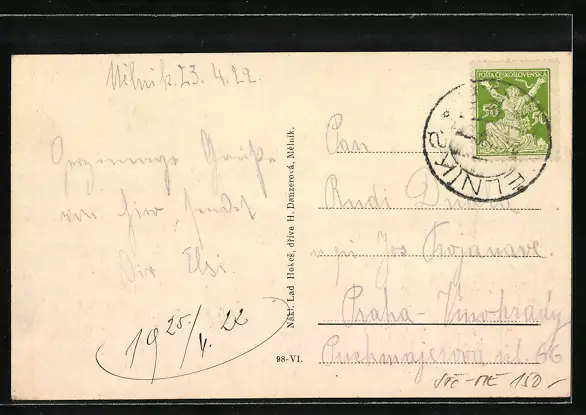 Mělník 23.4.22.
POŠTA ČESKOSLOVENSKÁ
50 50
MĚLNÍK
Grüße
von hier sendet
Dir Elsi
19 25/4. 22
Nákl. Lad Hokeš, dříve H. Danzerová, Mělník.
98-VI.
Pan
Rudi
Jos
Praha-Vinohrady
Puchmajerova ul. 66
150